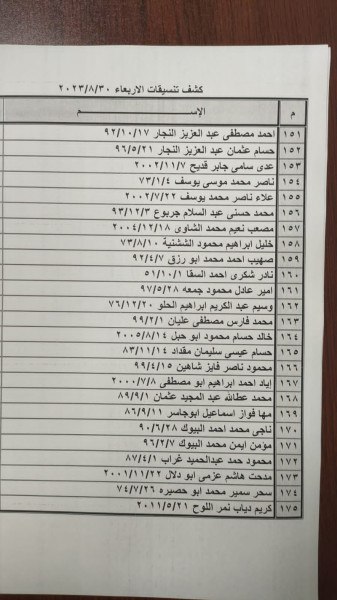 كشف تنسيقات الاربعاء ٢٠٢٣/٨/٣٠
م الإســـم
١٥١ احمد مصطفى عبد العزيز النجار ٩٢/١٠/١٧
١٥٢ حسام عثمان عبد العزيز النجار ٩٦/٥/٢١
١٥٣ عدى سامى جابر قديح ٢٠٠٢/١١/٧
١٥٤ ناصر محمد موسى يوسف ٧٣/١/٤
١٥٥ علاء ناصر محمد يوسف ٢٠٠٢/٧/٢٢
١٥٦ محمد حسنى عبد السلام جربوع ٩٣/١٢/٣
١٥٧ مصعب نعيم محمد الشاوى ٢٠٠٤/١٢/١٨
١٥٨ خليل ابراهيم محمود الششنية ٧٣/٨/١٠
١٥٩ صهيب احمد محمد ابو رزق ٩٢/٤/٧
١٦٠ نادر شكرى احمد السقا ٥١/١٠/١
١٦١ امير عادل محمود جمعه ٩٧/٥/٢٨
١٦٢ وسيم عبد الكريم ابراهيم الحلو ٧٦/١٢/٢٠
١٦٣ محمد فارس مصطفى عليان ٩٩/٢/١
١٦٤ خالد حسام محمود ابو حبل ٢٠٠٥/٨/١٤
١٦٥ حسام عيسى سليمان مقداد ٨٣/١١/١٤
١٦٦ محمود ناصر فايز شاهين ٩٩/٤/١٥
١٦٧ اياد احمد ابراهيم ابو مصطفى ٢٠٠٠/٧/٨
١٦٨ محمد عطالله عبد المجيد عثمان ٨٩/٩/١
١٦٩ مها فواز اسماعيل ابوجاسر ٨٦/٩/١١
١٧٠ ناجى محمد احمد البيوك ٩٠/٦/٢٨
١٧١ مؤمن ايمن محمد البيوك ٩٦/٢/٧
١٧٢ محمود حمد عبدالحميد غراب ٨٧/٤/١
١٧٣ مدحت هاشم عزمى ابو دلال ٢٠٠١/١١/٢٢
١٧٤ سحر سمير محمد ابو حصيره ٧٤/٧/٢٦
١٧٥ كريم دياب نمر اللوح ٢٠١١/٥/٢١